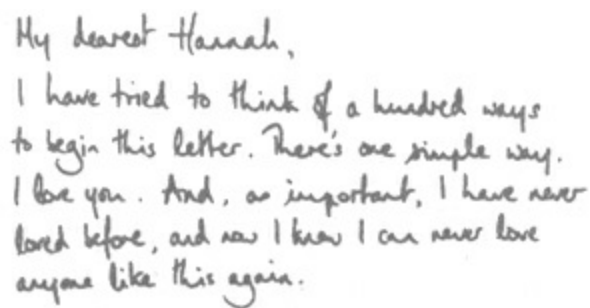 My dearest Hannah,
I have tried to think of a hundred ways
to begin this letter. There's one simple way.
I love you. And, as important, I have never
loved before, and now I know I can never love
anyone like this again.